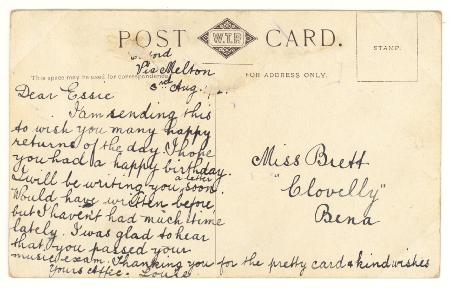 POST W.T.P. CARD.
STAMP.
This space may be used for correspondence
FOR ADDRESS ONLY.
Via Melton
3rd Aug.
Dear Essie
I am sending this
to wish you many happy
returns of the day. I hope
you had a happy birthday.
I will be writing you a letter soon.
Would have written before
but I haven't had much time
lately. I was glad to hear
that you passed your
music exam. Thanking you for the pretty card & kind wishes
Yours affec. Louie
Miss Brett
"Clovelly"
Bena